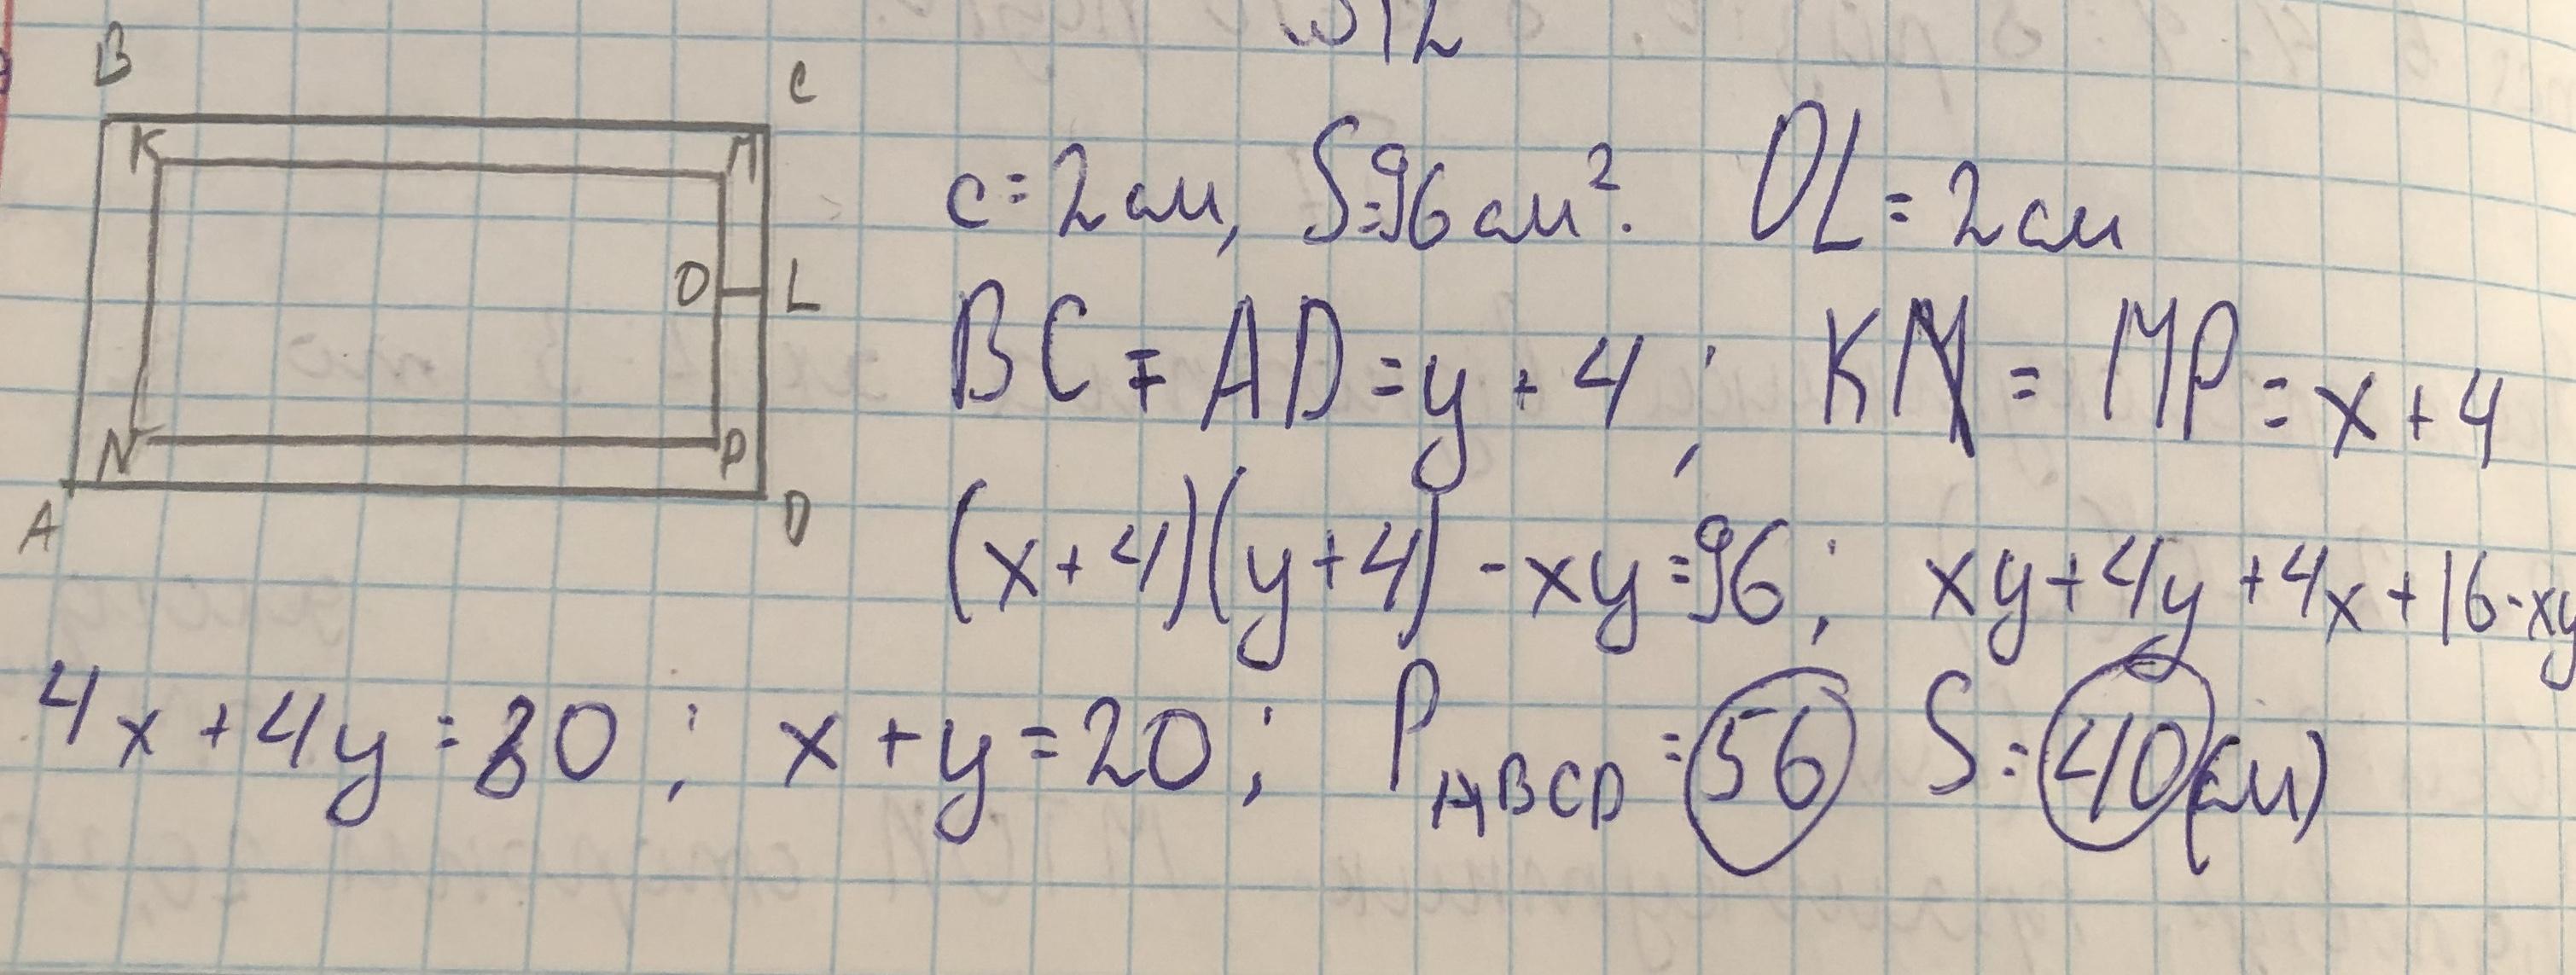 №12
B
C
K
M
c=2см, S=96см². OL=2см
O
L
BC = AD = y + 4 ; KN = MP = x + 4
N
P
A
D
(x+4)(y+4) - xy=96 ; xy+4y+4x+16-xy
4x+4y=80 ; x+y=20 ; P ABCD = 56 S=40(см)